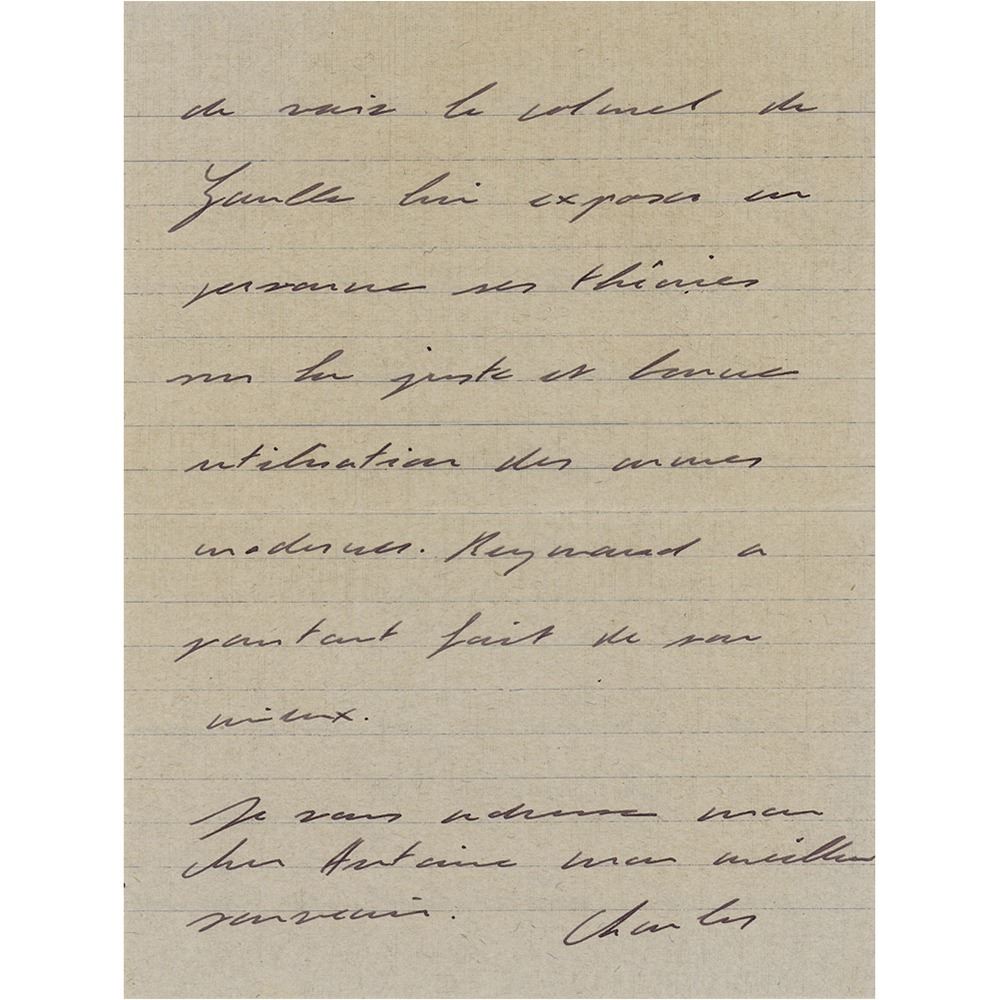 de voir le colonel de
Gaulle lui exposer en
personne ses théories
sur la juste et bonne
utilisation des armes
modernes. Reymond a
pourtant fait de son
mieux.
Je vous adresse mon
cher Antoine mon meilleur
souvenir. Charles